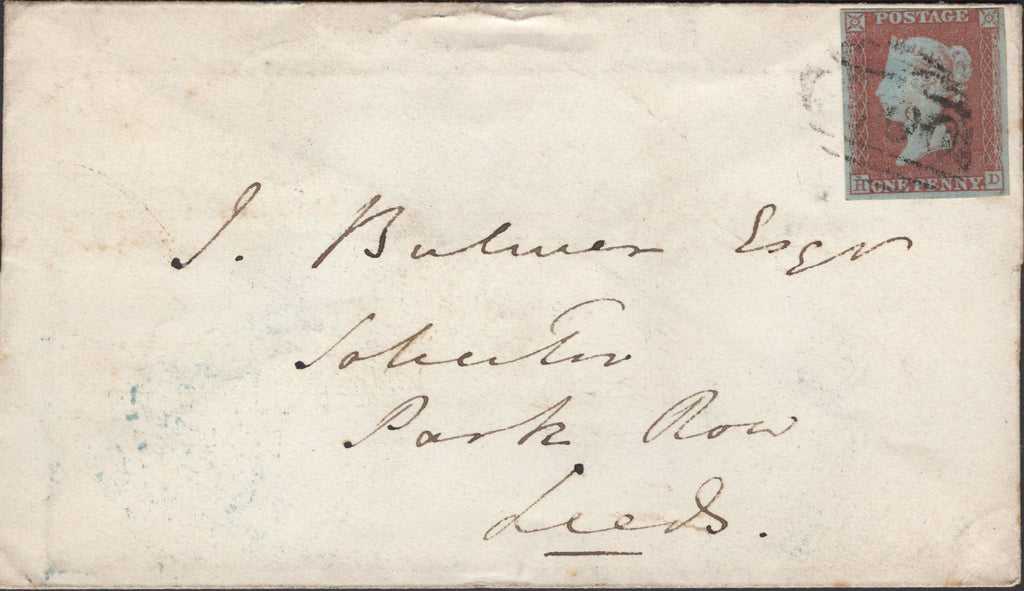 POSTAGE
H ONE PENNY. D
J. Bulmer Esqr
Solicitor
Park Row
Leeds.